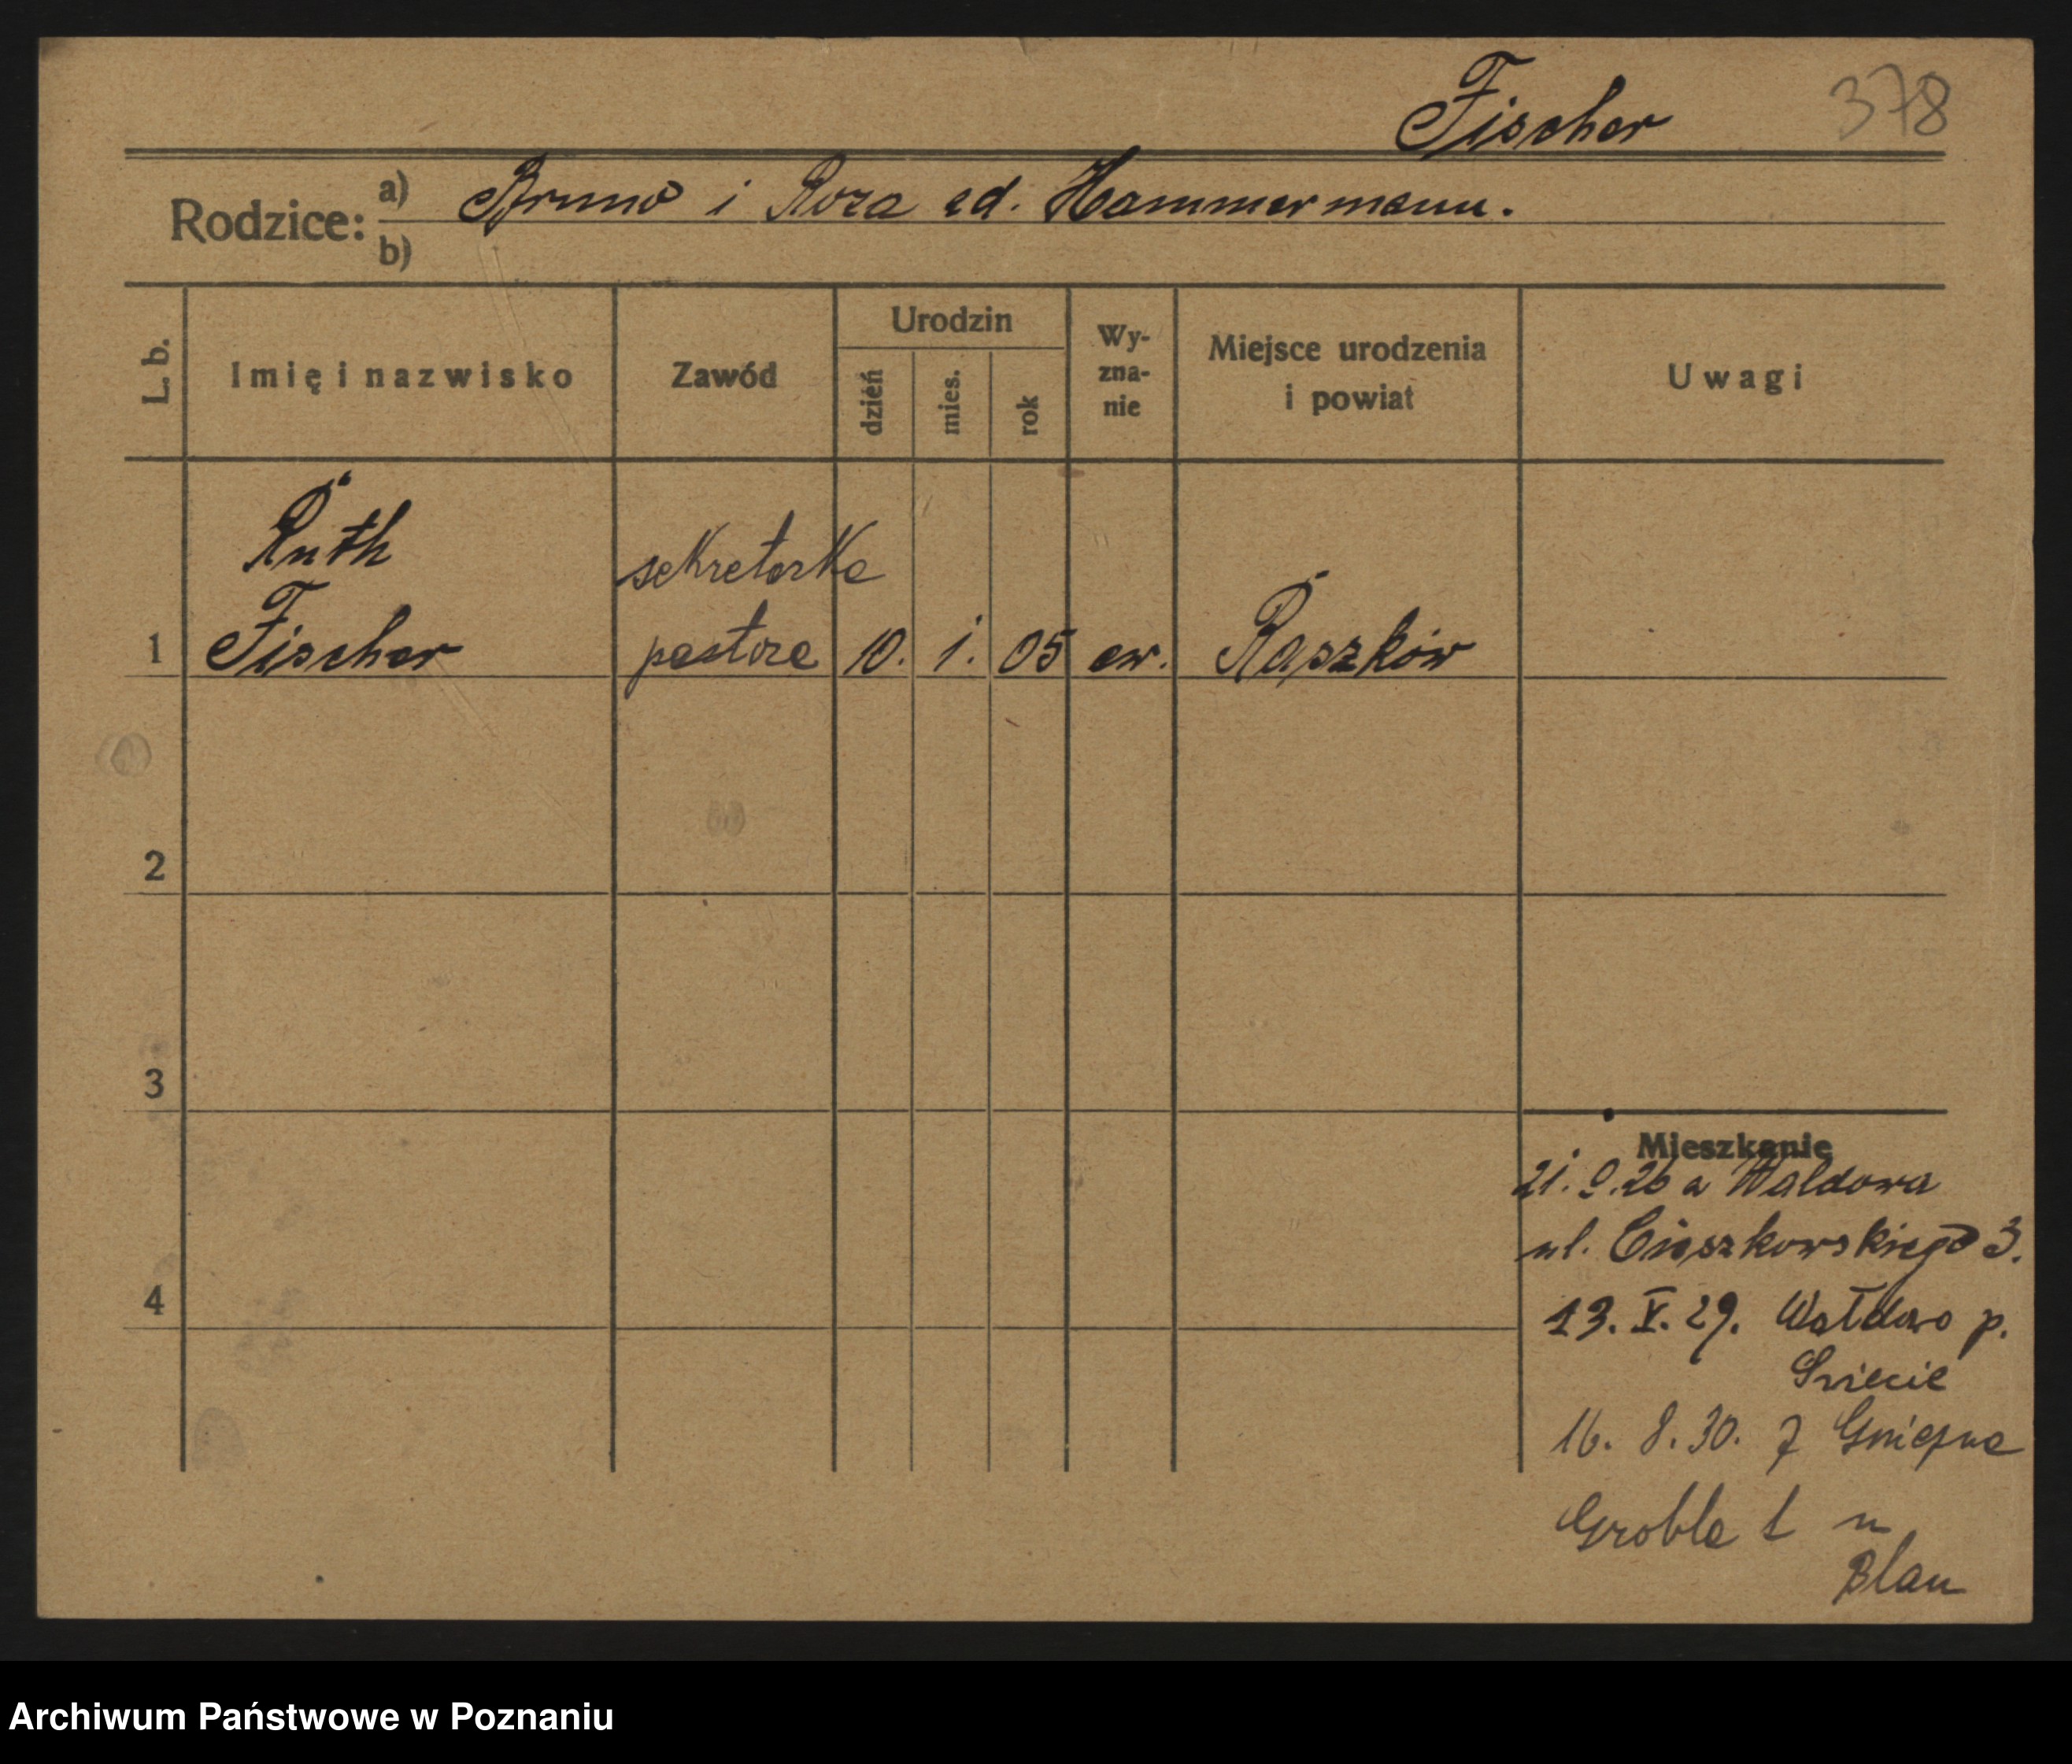 Fischer 378
Rodzice: a) Bruno i Roza zd. Hammermann.
b)
L. b. Imię i nazwisko Zawód Urodzin dzień mies. rok Wy-zna-nie Miejsce urodzenia i powiat Uwagi
Ruth
Fischer
sekretarka
pastora
1 10. 1. 05 ew. Raszków
2
3
4
Mieszkanie
21. 9. 26 a Waldowa
ul. Cieszkowskiego 3.
13. V. 29. Wałdowo p.
Świecie
16. 8. 30. z Gniezna
Grobla 1 u
Blau
Archiwum Państwowe w Poznaniu